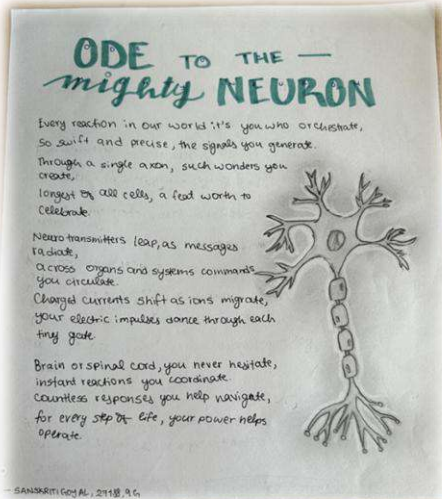 ODE TO THE —
mighty NEURON
Every reaction in our world it's you who orchestrate,
so swift and precise, the signals you generate.
Through a single axon, such wonders you
create,
longest of all cells, a feat worth to
celebrate.
Neurotransmitters leap, as messages
radiate,
across organs and systems commands
you circulate.
Charged currents shift as ions migrate,
your electric impulses dance through each
tiny gate.
Brain or spinal cord, you never hesitate,
instant reactions you coordinate.
Countless responses you help navigate,
for every step of life, your power helps
operate.
- SANSKRITI GOYAL, 27188, 9G